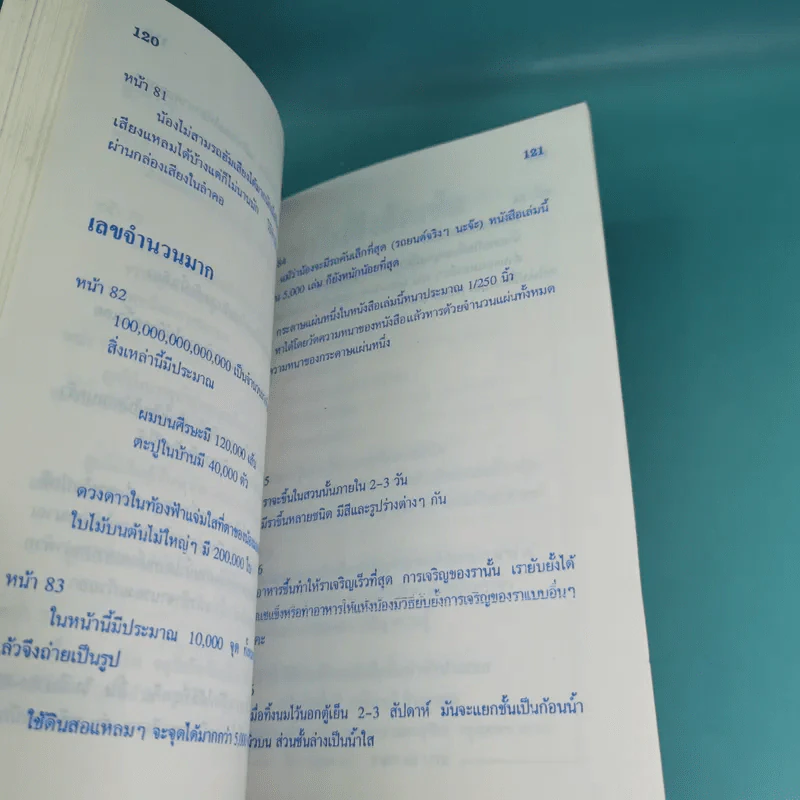 120
หน้า 81
น้องไม่สามารถฮัมเสียงได้
เสียงแหลมได้บ้างแต่ก็ไม่นานนัก
ผ่านกล่องเสียงในลำคอ
เลขจำนวนมาก
หน้า 82
100,000,000,000,000 เป็นจำนวน
สิ่งเหล่านี้มีประมาณ
ผมบนศีรษะมี 120,000 เส้น
ตะปูในบ้านมี 40,000 ตัว
ดวงดาวในท้องฟ้าแจ่มใสที่ตาของ
ใบไม้บนต้นไม้ใหญ่ๆ มี 200,000 ใบ
หน้า 83
ในหน้านี้มีประมาณ 10,000 จุด
ล้วจึงถ่ายเป็นรูป
ใช้ดินสอแหลมๆ จะจุดได้มากกว่า
121
84
แม้ว่าน้องจะมีรถคันเล็กที่สุด (รถยนต์จริงๆ นะจ๊ะ) หนังสือเล่มนี้
5,000 เล่ม ก็ยังหนักน้อยที่สุด
กระดาษแผ่นหนึ่งในหนังสือเล่มนี้หนาประมาณ 1/250 นิ้ว
หาได้โดยวัดความหนาของหนังสือแล้วหารด้วยจำนวนแผ่นทั้งหมด
ความหนาของกระดาษแผ่นหนึ่ง
5
ราจะขึ้นในสวนนั้นภายใน 2-3 วัน
มีราขึ้นหลายชนิด มีสีและรูปร่างต่างๆ กัน
6
อาหารชื้นทำให้ราเจริญเร็วที่สุด การเจริญของรานั้น เรายับยั้งได้
แช่แข็งหรือทำอาหารให้แห้งน้องมีวิธียับยั้งการเจริญของราแบบอื่นๆ
คะ
6
มื่อทิ้งนมไว้นอกตู้เย็น 2-3 สัปดาห์ มันจะแยกชั้นเป็นก้อนน้ำ
บน ส่วนชั้นล่างเป็นน้ำใส